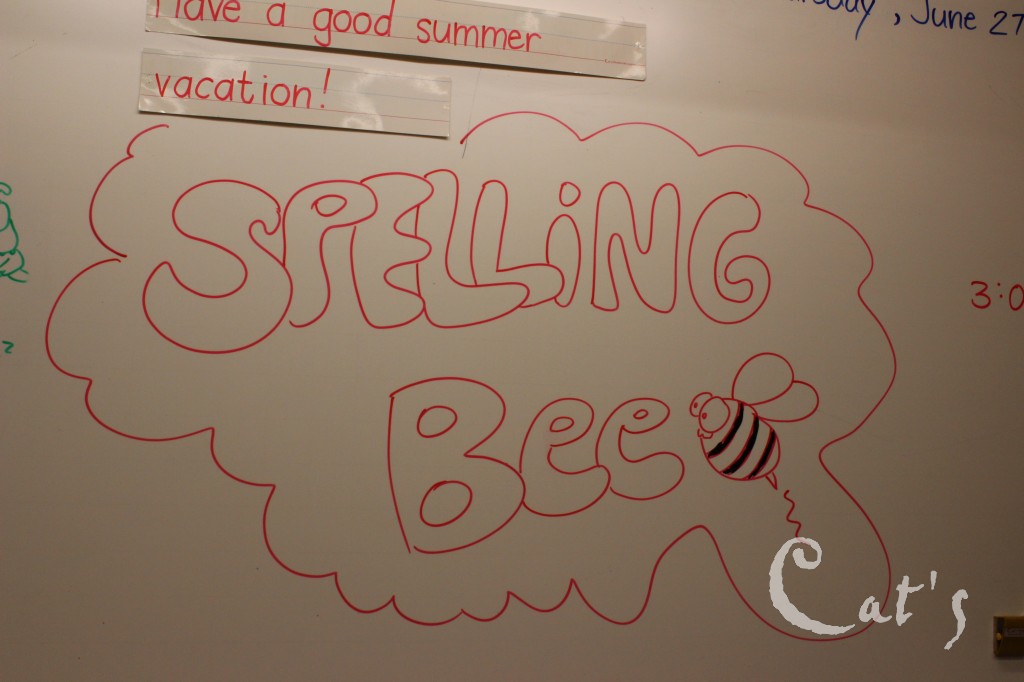 Have a good summer
vacation!
June 27
SPELLiNG
Bee
3:0
Cat's